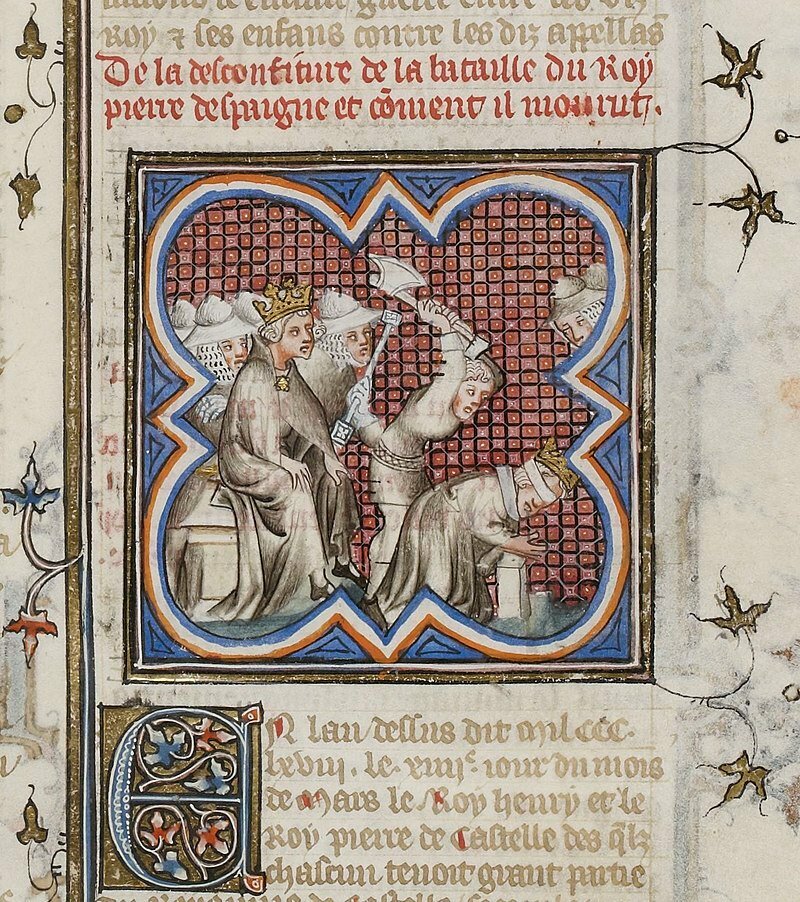 guerre entre les diz
Roy ⁊ ses enfans contre les diz appellas
De la desconfiture de la bataille du Roy
pierre despaigne et cōment il mourut.
EN lan dessus dit mil ccc.
lxviij. le xiiij^e. iour du mois
de Mars le Roy henry et le
Roy pierre de Castelle des q̄lz
chascun tenoit grant partie